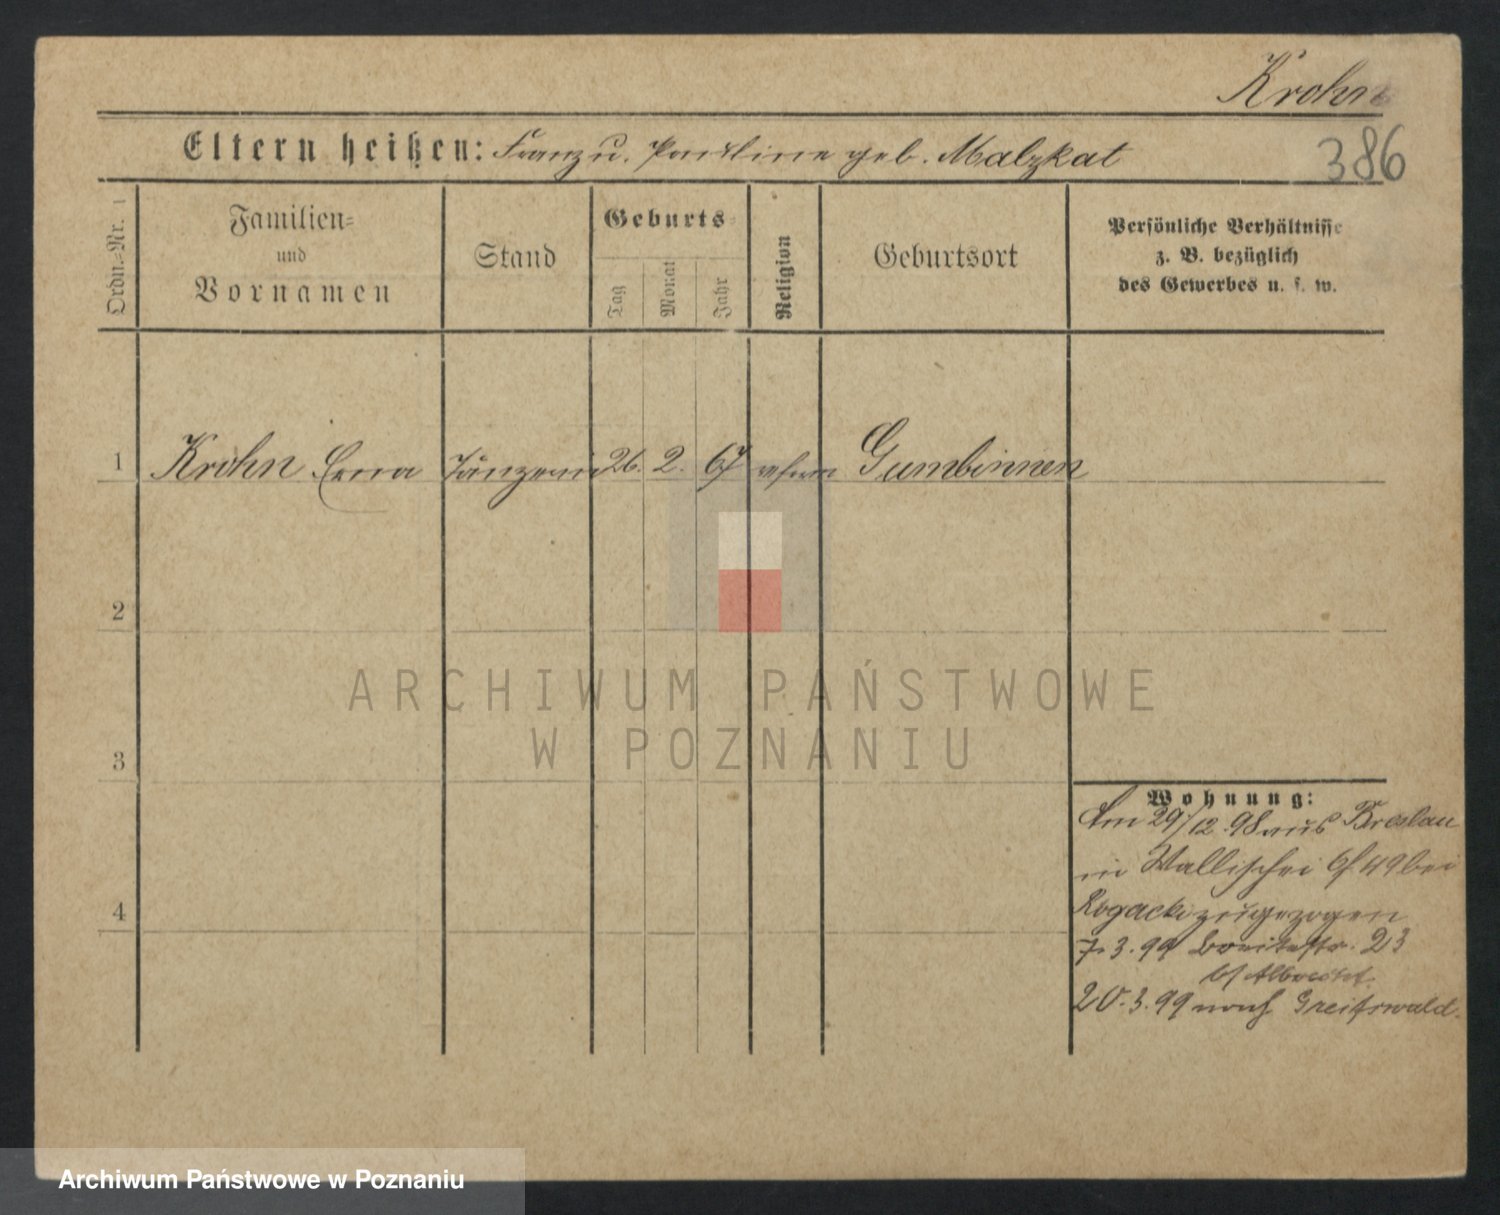 Krohn
Eltern heißen: Franz u. Pauline geb. Malzkat
386
Ordn.-Nr.
Familien-
und
Vornamen
Stand
Geburts-
Tag
Monat
Jahr
Religion
Geburtsort
Persönliche Verhältnisse
z. B. bezüglich
des Gewerbes u. s. w.
1 Krohn Erna Tänzerin 26. 2. 67 reform Gumbinnen
2
3
4
ARCHIWUM PAŃSTWOWE
W POZNANIU
Wohnung:
Am 29/12 98 aus Breslau
in Wallischei 49 bei
Rogacki zugezogen
7.3.99 Breitestr. 23
b/ Albrecht
20.3.99 nach Greifswald.
Archiwum Państwowe w Poznaniu